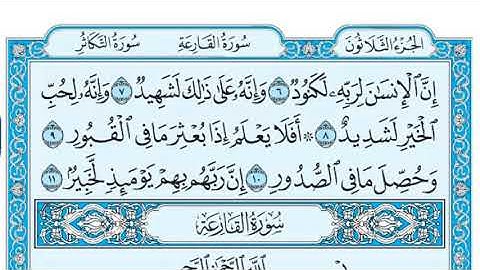 الجزء الثلاثون سورة القارعة سورة التكاثر
إِنَّ ٱلْإِنسَٰنَ لِرَبِّهِۦ لَكَنُودٌ ٦ وَإِنَّهُۥ عَلَىٰ ذَٰلِكَ لَشَهِيدٌ ٧ وَإِنَّهُۥ لِحُبِّ
ٱلْخَيْرِ لَشَدِيدٌ ٨ ۞ أَفَلَا يَعْلَمُ إِذَا بُعْثِرَ مَا فِى ٱلْقُبُورِ ٩
وَحُصِّلَ مَا فِى ٱلصُّدُورِ ١٠ إِنَّ رَبَّهُم بِهِمْ يَوْمَئِذٍ لَّخَبِيرٌۢ ١١
سورة القارعة